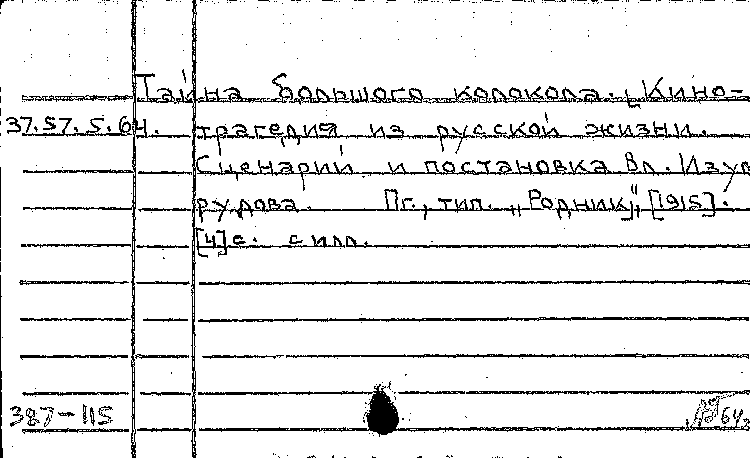 Тайна большого колокола. [Кино-
37.57.5.64. трагедия из русской жизни.
Сценарий и постановка Вл. Изум
рудова. Пг., тип. „Родник", [1915].
[4]с. с илл.
387-115